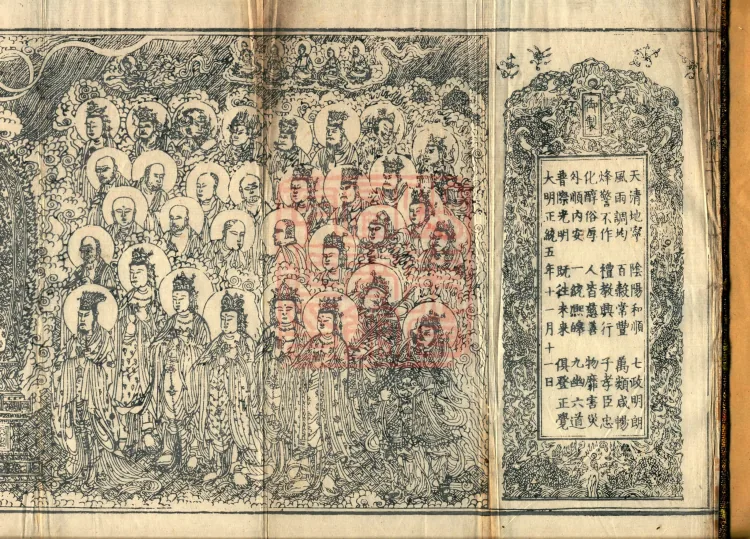 御製
天清地寧 陰陽和順 七政明朗
風雨調均 百穀常豐 萬類咸暢
烽警不作 禮教興行 子孝臣忠
化醇俗厚 人皆慈善 物靡害災
外順內安 一統熈皥 九幽六道
普際光明 既往未來 俱登正覺
大明正統五年十一月十一日